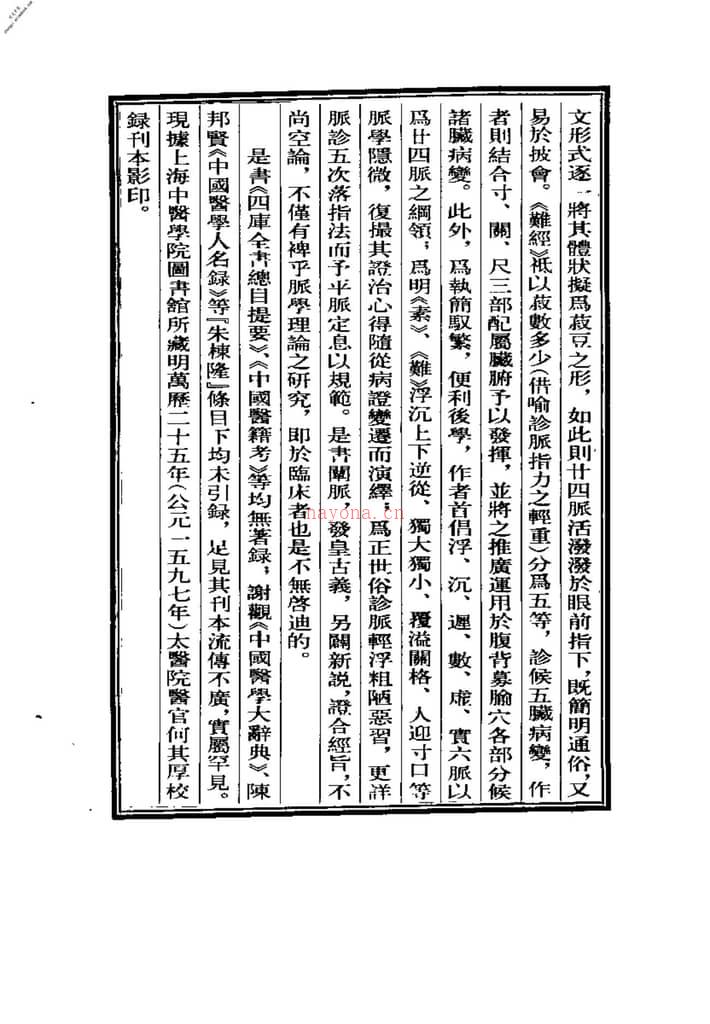 文形式逐一將其體狀擬爲菽豆之形，如此則廿四脈活潑潑於眼前指下，既簡明通俗，又
易於披會。《難經》祗以菽數多少（借喻診脈指力之輕重）分爲五等，診候五臟病變，作
者則結合寸、關、尺三部配屬臟腑予以發揮，並將之推廣運用於腹背募腧穴各部分候
諸臟病變。此外，爲執簡馭繁，便利後學，作者首倡浮、沉、遲、數、虛、實六脈以
爲廿四脈之綱領；爲明《素》、《難》浮沉上下逆從、獨大獨小、覆溢關格、人迎寸口等
脈學隱微，復撮其證治心得隨從病證變遷而演繹；爲正世俗診脈輕浮粗陋惡習，更詳
脈診五次落指法而予平脈定息以規範。是書闡脈，發皇古義，另闢新説，證合經旨，不
尚空論，不僅有裨乎脈學理論之研究，即於臨床者也是不無啓迪的。
是書《四庫全書總目提要》、《中國醫籍考》等均無著録；謝觀《中國醫學大辭典》、陳
邦賢《中國醫學人名録》等『朱棟隆』條目下均未引録，足見其刊本流傳不廣，實屬罕見。
現據上海中醫學院圖書館所藏明萬歷二十五年（公元一五九七年）太醫院醫官何其厚校
録刊本影印。
nayona.cn